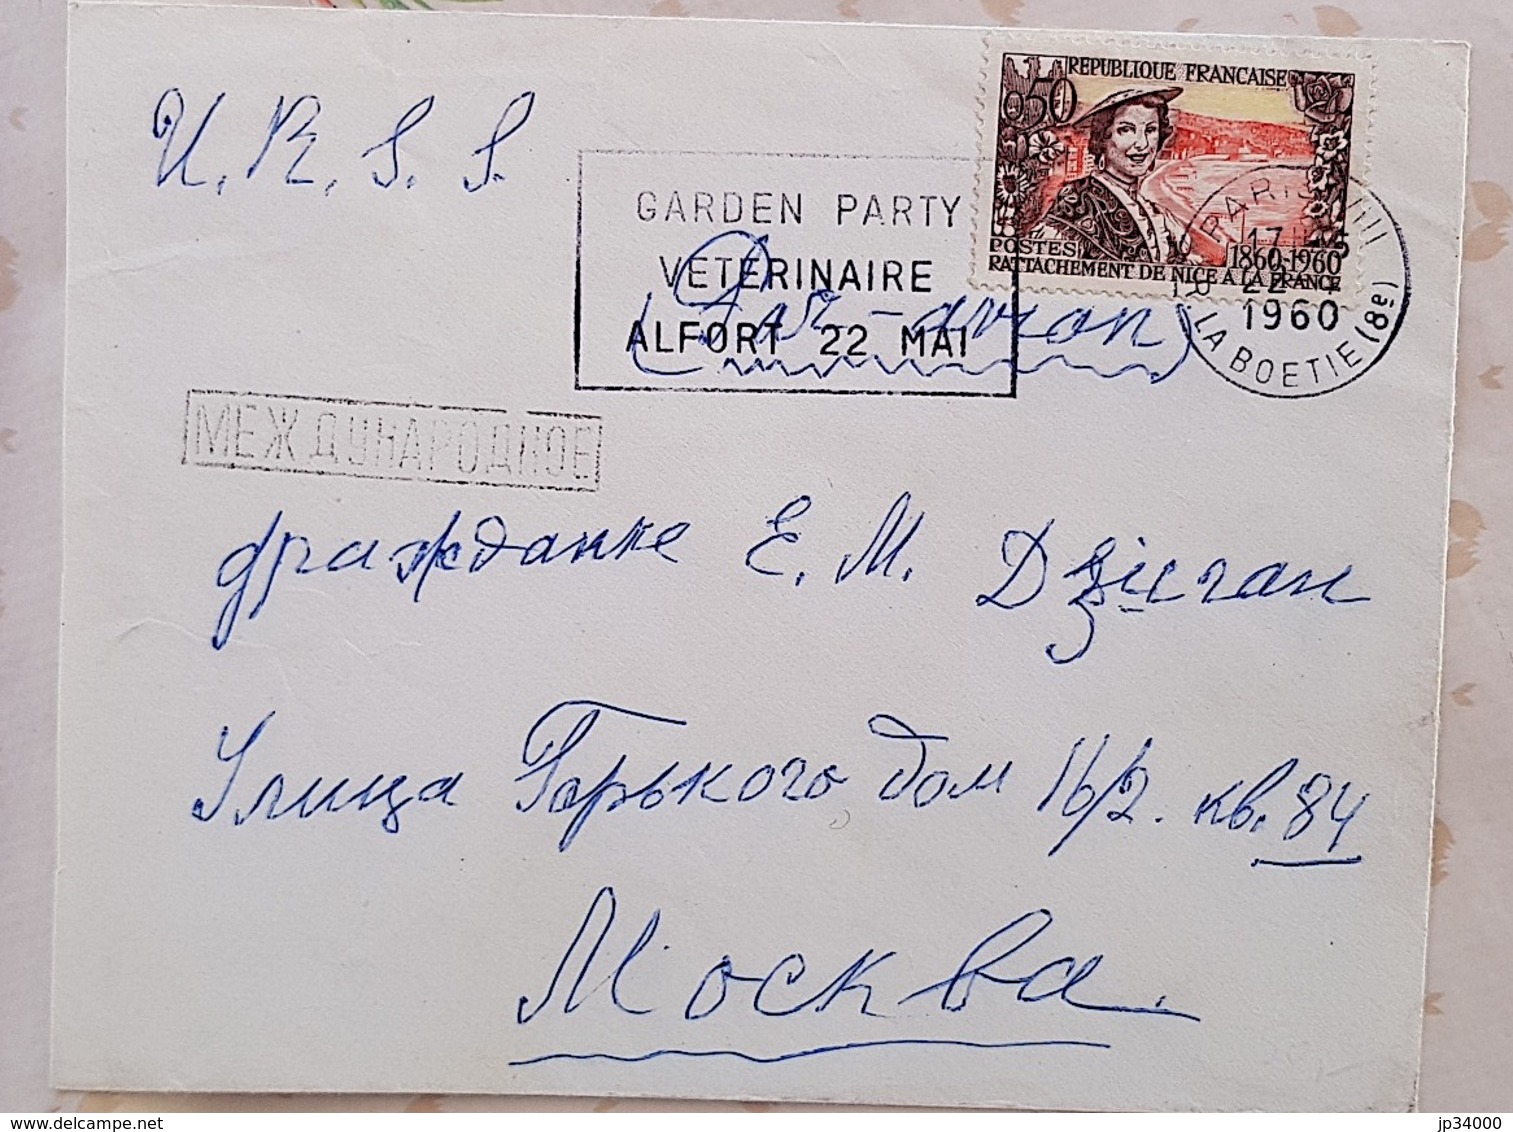 U.R.S.S.
REPUBLIQUE FRANCAISE
0,50
POSTES 1860-1960
RATTACHEMENT DE NICE A LA FRANCE
GARDEN PARTY
VETERINAIRE
ALFORT 22 MAI
(Par-avion)
PARIS VIII
1960
LA BOETIE (8e)
МЕЖДУНАРОДНОЕ
гражданке Е. М. Дзиган
Улица Горького дом 16/2. кв. 84
Москва.
delcampe.net
jp34000